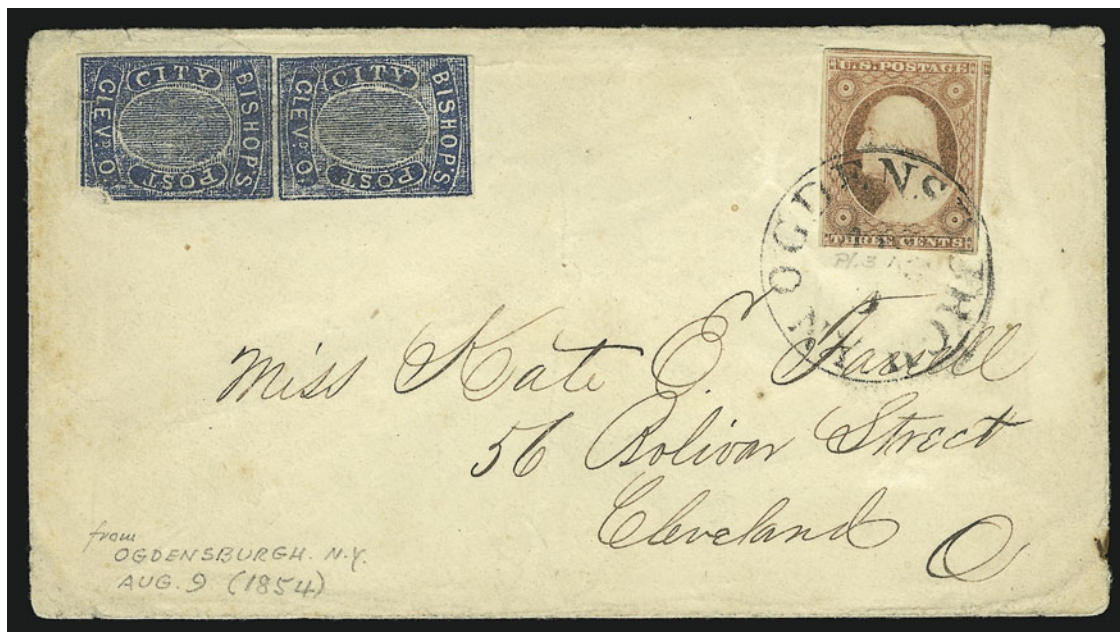 CITY BISHOP'S POST CLEVD. O.
CITY BISHOP'S POST CLEVD. O.
U.S. POSTAGE
THREE CENTS
OGDENSBURGH N.Y.
Pl. 3
Miss Kate E. Farwell
56 Bolivar Street
Cleveland O
from
OGDENSBURGH. N.Y.
AUG. 9 (1854)